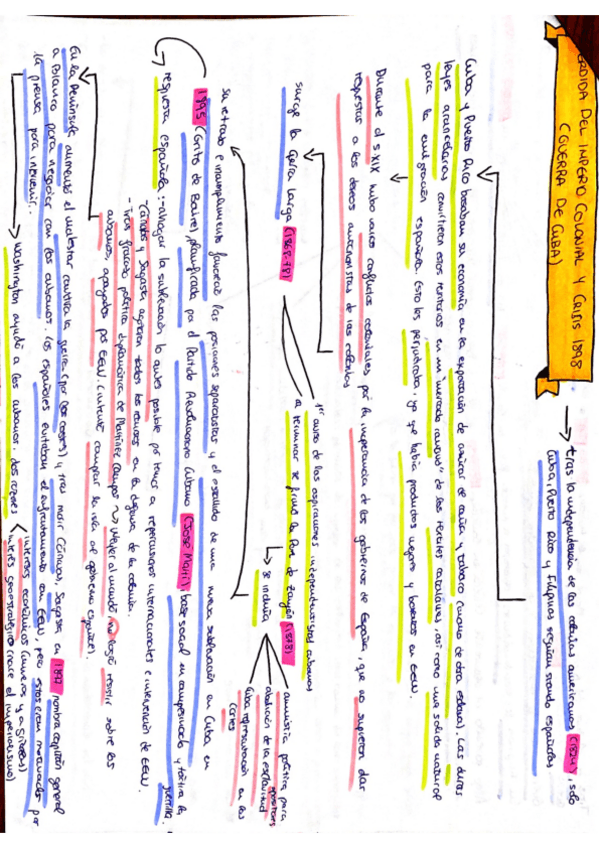 PERDIDA DEL IMPERIO COLONIAL Y CRISIS 1898
(GUERRA DE CUBA)
→ tras la independencia de las colonias americanas (1824), solo
Cuba, Puerto Rico y Filipinas seguían siendo españolas
Cuba y Puerto Rico basaban su economía en la exportación de azúcar de caña y tabaco (mano de obra esclava). Las duras
leyes arancelarias convirtieron estos territorios en un mercado de los textiles catalanes, así como una salida natural
para la emigración española. Esto les perjudicaba, ya que había productos mejores y baratos en EEUU.
Durante el s.XIX hubo varios conflictos coloniales por la inoperancia de los gobiernos de España, que no supieron dar
respuestas a los deseos autonomistas de las colonias
surge la Guerra larga (1868-78)
1er aviso de las aspiraciones independentistas cubanas
al terminar se firmó la Paz de Zanjón (1878)
↳ se incluía
amnistía política para opositores
abolición de la esclavitud
Cuba representación en las
Cortes
su retraso e incumplimiento favoreció las posiciones separatistas y el estallido de una nueva sublevación en Cuba en
1895 (Grito de Baire) planificada por el Partido Revolucionario Cubano (José Martí), base social en campesinado y táctica de
guerrilla.
respuesta española: ahogar la sublevación lo antes posible por temor a repercusiones internacionales e intervención de EEUU.
Cánovas y Sagasta agotaron todos los recursos en la defensa de la colonia.
- Tras fracaso política diplomática de Martínez Campos → Weyler al mando no logró resistir sobre los
cubanos, apoyados por EEUU. (intentó comprar la isla al gobierno español).
En la Península aumentó el malestar contra la guerra (por los costes) y tras morir Cánovas, Sagasta en 1897 nombra capitán general
a Blanco para negociar con los cubanos. Los españoles evitaban el enfrentamiento con EEUU, pero estos eran motivados por
la prensa para intervenir.
→ Washington ayudó a los cubanos, dos razones
intereses económicos (mineros y agrícolas)
interés geoestratégico (nace el imperialismo)